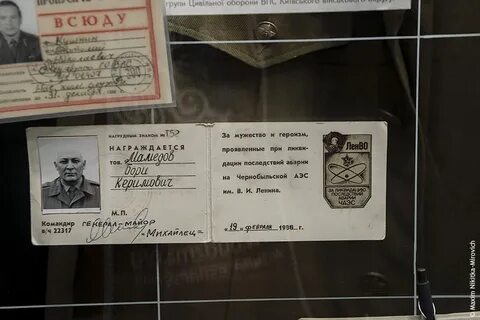 ВСЮДУ
групи Цивільної оборони ВПС Київського військового округу
31 декабря
НАГРУДНЫМ ЗНАКОМ №
НАГРАЖДАЕТСЯ
тов. Мамедов
Бори
Керимович
М.П.
Командир ГЕНЕРАЛ-МАЙОР
в/ч 22317
"МИХАЙЛЕЦ"
За мужество и героизм,
проявленные при ликви-
дации последствий аварии
на Чернобыльской АЭС
им. В. И. Ленина.
"19" ФЕВРАЛЯ
ЛенВО
ЗА ЛИКВИДАЦИЮ
ПОСЛЕДСТВИЙ
АВАРИИ
ЧАЭС
© Maxim Nikitka-Mirovich